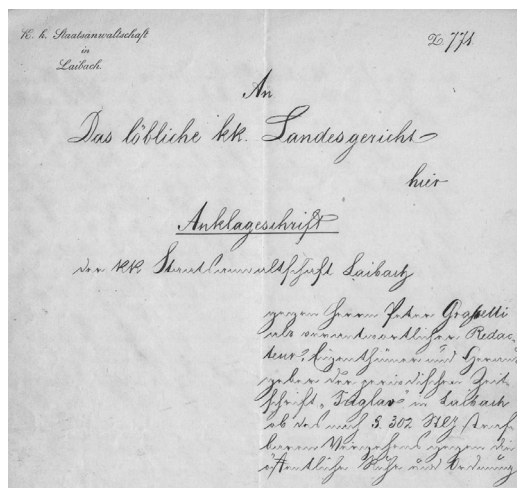 K. k. Staatsanwaltschaft
in
Laibach.
Z 771
An
Das löbliche kk. Landesgericht
hier
Anklageschrift
der kk. Staatsanwaltschaft Laibach
gegen Herrn Peter Graßelli
als verantwortlicher Redac-
teur, Eigenthümer und Heraus
geber der periodischen Zeit
schrift „ " in Laibach
ob des nach §. 302 StG straf
baren Vergehens gegen die
öffentliche Ruhe und Ordnung